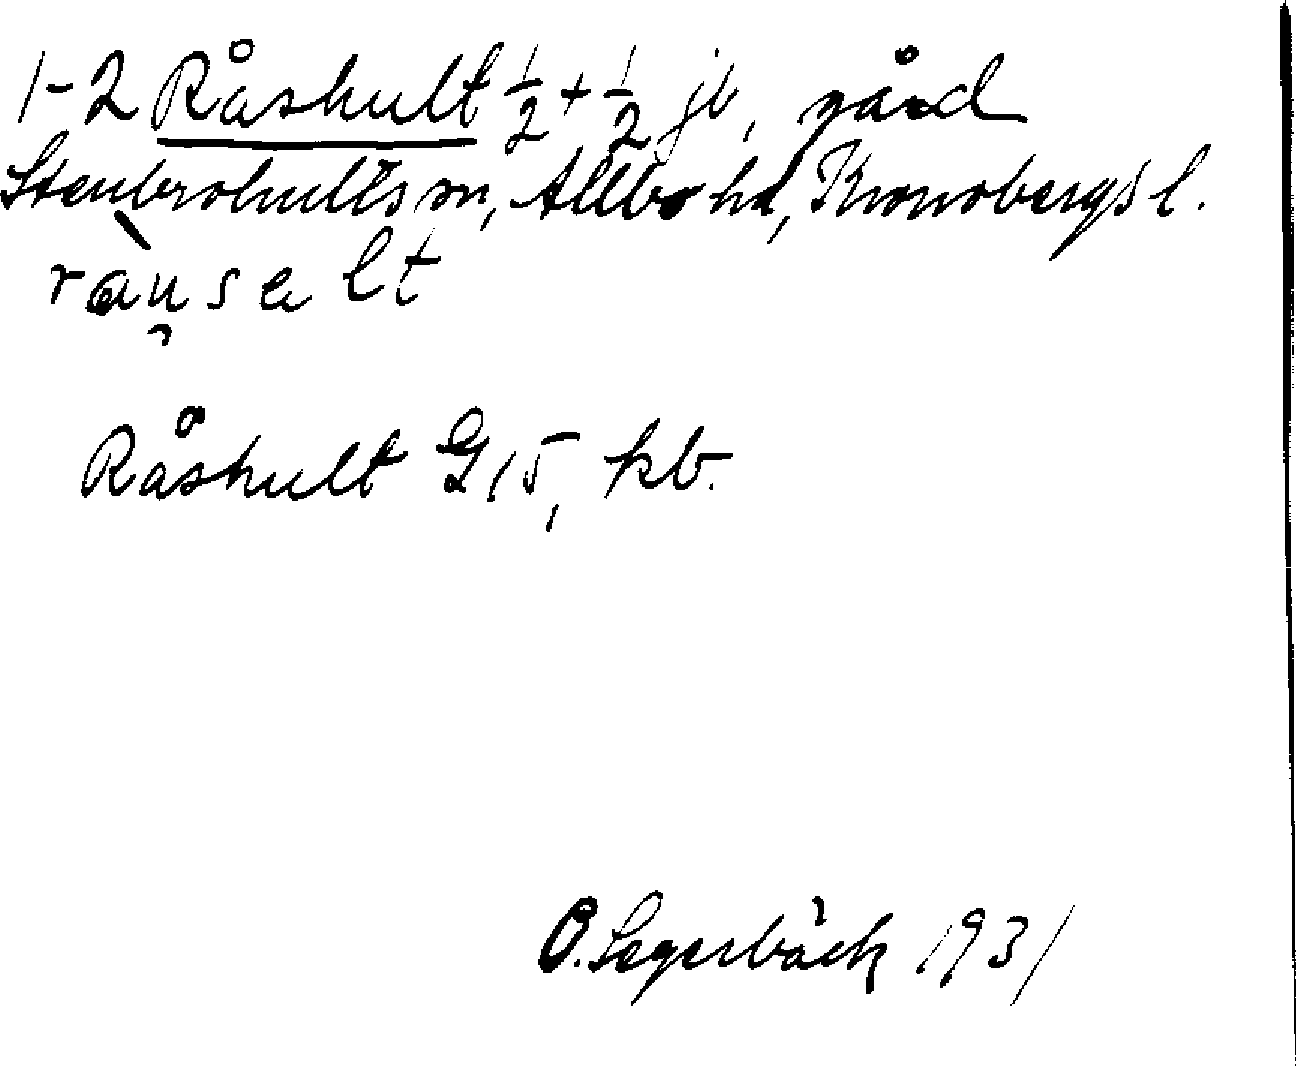 1-2 Råshult ½ + ½ jb, gård
Stenbrohults sn, Allbo hd, Kronobergs l.
Råshult G 15, kb.
O. Segerbäck 1931